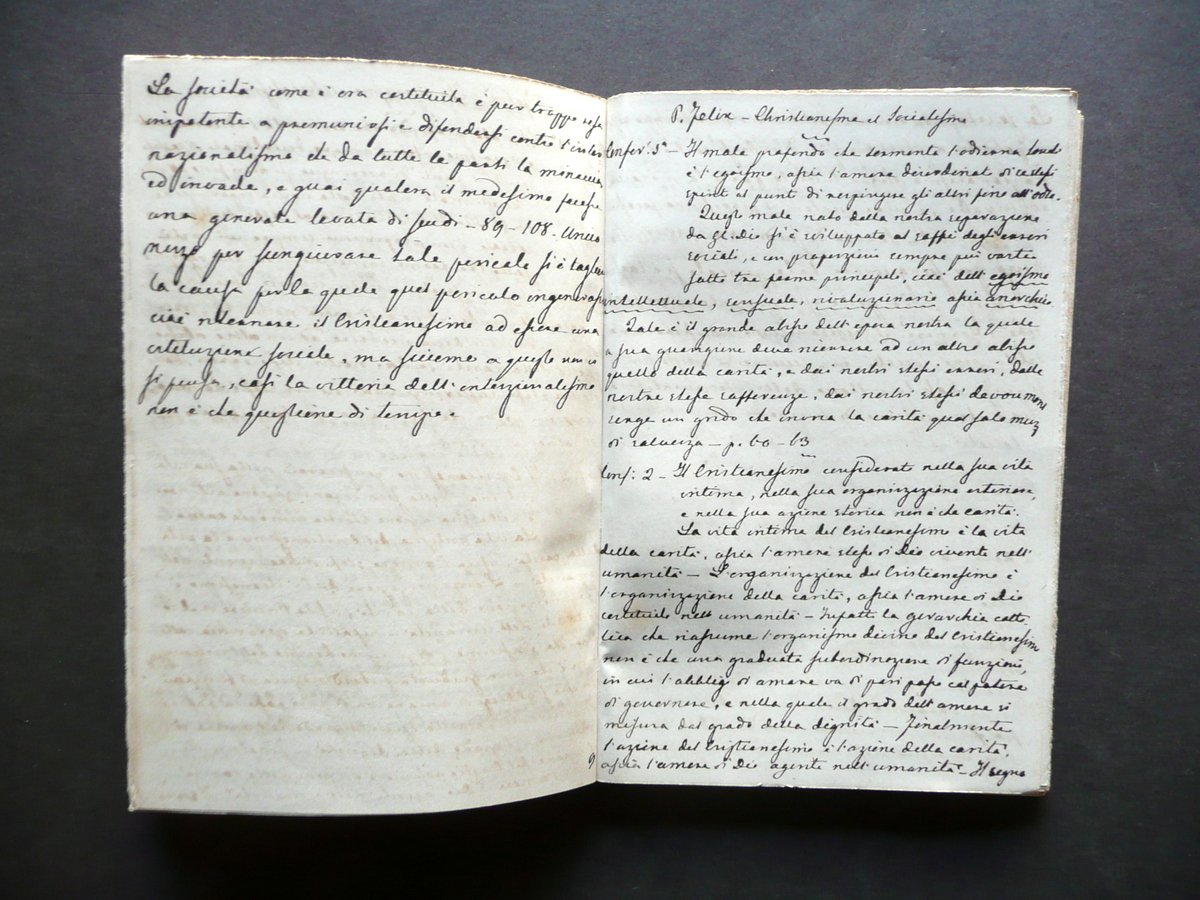 La società come è ora costituita è pur troppo resa
impotente a premunirsi e difendersi contro l'inter
nazionalismo che da tutte le parti la minaccia
ed invade, e guai qualora il medesimo facesse
una generale levata di scudi - 89 - 108. Unico
mezzo per scongiurare tale pericolo si è togliere
la causa per la quale quel pericolo ingenerassi
cioè ritornare il Cristianesimo ad essere una
istituzione sociale, ma siccome a questo non ci
si pensa, così la vittoria dell'interzionalismo
non è che questione di tempo.
P. Felix - Christianesmo el Socialismo
Confer. 5ª - Il male profondo che tormenta l'odierna
è l'egoismo, assia l'amore disordinat di se stessi
spint al punt di respingere gli altri fino all'odio.
Questo male nato dalla nostra separazione
da G. Dio si è sviluppato al soffi degli errori
sociali, e con proporzioni sempre più vaste
sotto tre forme principali, cioè dell'egoismo
intellettuale, sensuale, rivoluzionario assia anarchic
Tale è il grande abisso dell'epoca nostra la quale
a sua guarigione deve ricorrere ad un altro abisso
quello della carità, e dai nostri stessi errori, dalle
nostre stesse sofferenze, dai nostri stessi
sorge un grido che invoca la carità qual solo mezz
di salvezza - p. 60 - 63
Conf: 2 - Il Cristianesimo considerato nella sua vita
intima, nella sua organizzazione esteriore,
e nella sua azione storica non è che carità.
La vita intima del Cristianesimo è la vita
della carità, assia l'amore stesso di Dio vivente nell'
umanità - L'organizzazione del Cristianesimo è
l'organizzazione della carità, assia l'amore di Dio
costituito nell'umanità - Infatti la gerarchia catto
lica che riassume l'organismo divino del Cristianesim
non è che una graduata subordinazione di funzioni,
in cui l'obblig di amare va di pari passo col potere
di governare, e nella quale il grado dell'amore si
misura dal grado della dignità - Finalmente
l'azione del Cristianesimo è l'azione della carità,
assia l'amore di Dio agente nell'umanità - Il segno